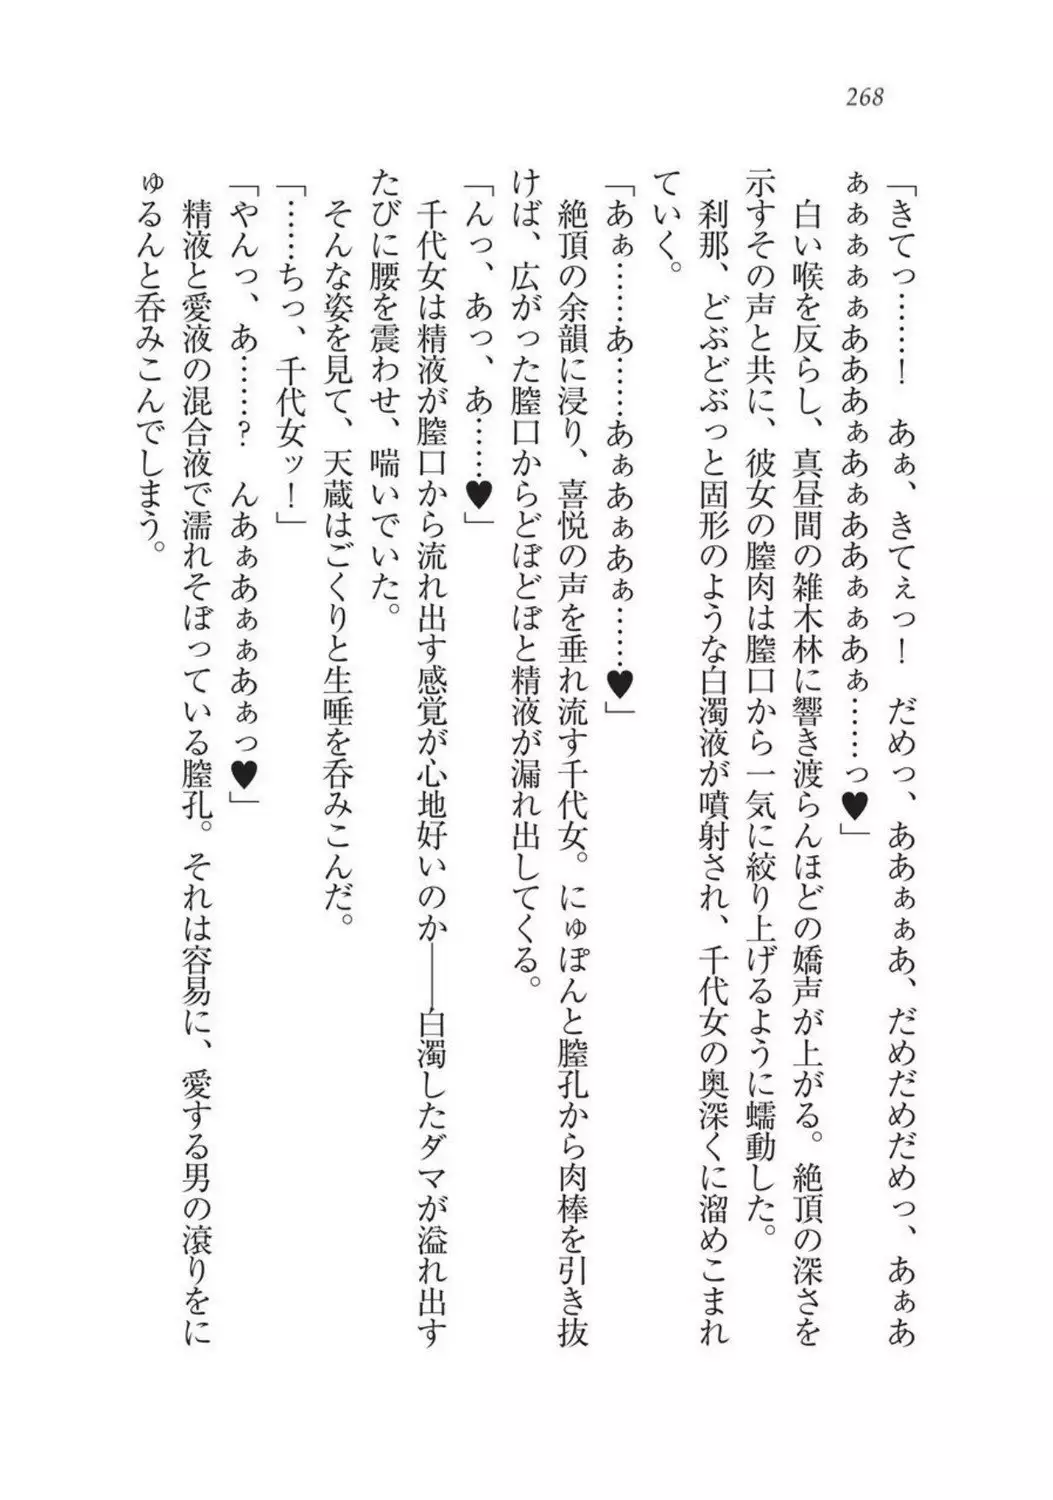 268
「きてっ……！　あぁ、きてぇっ！　だめっ、ああぁぁあ、だめだめだめっ、あぁあ
ぁぁぁぁぁあああぁあぁああぁぁあぁ……っ♥」
白い喉を反らし、真昼間の雑木林に響き渡らんほどの嬌声が上がる。絶頂の深さを
示すその声と共に、彼女の膣肉は膣口から一気に絞り上げるように蠕動した。
刹那、どぶどぶっと固形のような白濁液が噴射され、千代女の奥深くに溜めこまれ
ていく。
「あぁ……あ……あぁあぁあぁ……♥」
絶頂の余韻に浸り、喜悦の声を垂れ流す千代女。にゅぽんと膣孔から肉棒を引き抜
けば、広がった膣口からどぼどぼと精液が漏れ出してくる。
「んっ、あっ、あ……♥」
千代女は精液が膣口から流れ出す感覚が心地好いのか――白濁したダマが溢れ出す
たびに腰を震わせ、喘いでいた。
そんな姿を見て、天蔵はごくりと生唾を呑みこんだ。
「……ちっ、千代女ッ！」
「やんっ、あ……？　んあぁあぁぁあぁっ♥」
精液と愛液の混合液で濡れそぼっている膣孔。それは容易に、愛する男の滾りをに
ゅるんと呑みこんでしまう。